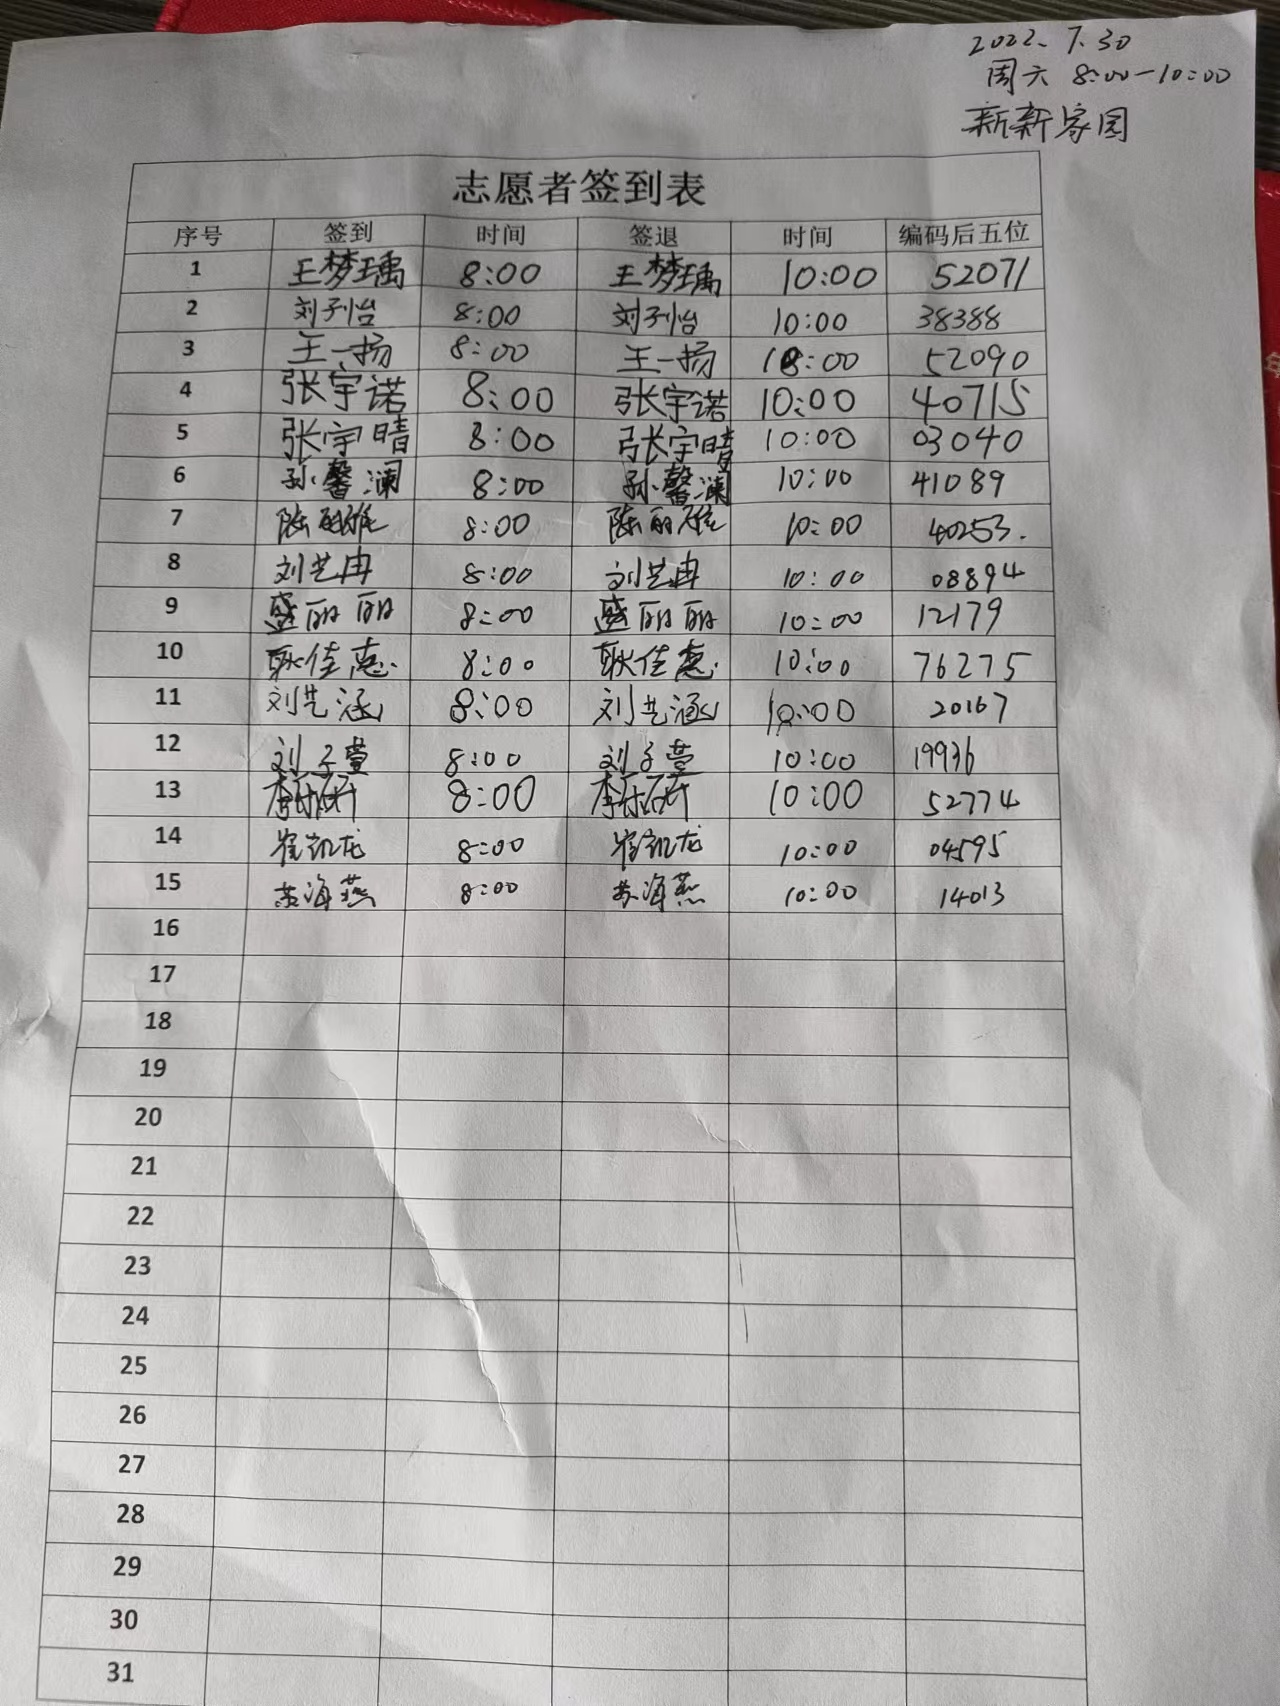 2022.7.30
周六 8:00-10:00
新新家园
志愿者签到表
序号 签到 时间 签退 时间 编码后五位
1 王梦瑀 8:00 王梦瑀 10:00 52071
2 刘子怡 8:00 刘子怡 10:00 38388
3 王一扬 8:00 王一扬 10:00 52090
4 张宇诺 8:00 张宇诺 10:00 40715
5 张宇晴 8:00 张宇晴 10:00 03040
6 孙馨澜 8:00 孙馨澜 10:00 41089
7 陈丽雅 8:00 陈丽雅 10:00 40253.
8 刘艺冉 8:00 刘艺冉 10:00 08894
9 盛丽丽 8:00 盛丽丽 10:00 12179
10 耿佳惠 8:00 耿佳惠 10:00 76275
11 刘艺涵 8:00 刘艺涵 10:00 20167
12 刘子萱 8:00 刘子萱 10:00 19936
13 8:00 10:00 52774
14 崔凯龙 8:00 崔凯龙 10:00 04595
15 苏海燕 8:00 苏海燕 10:00 14013
16
17
18
19
20
21
22
23
24
25
26
27
28
29
30
31